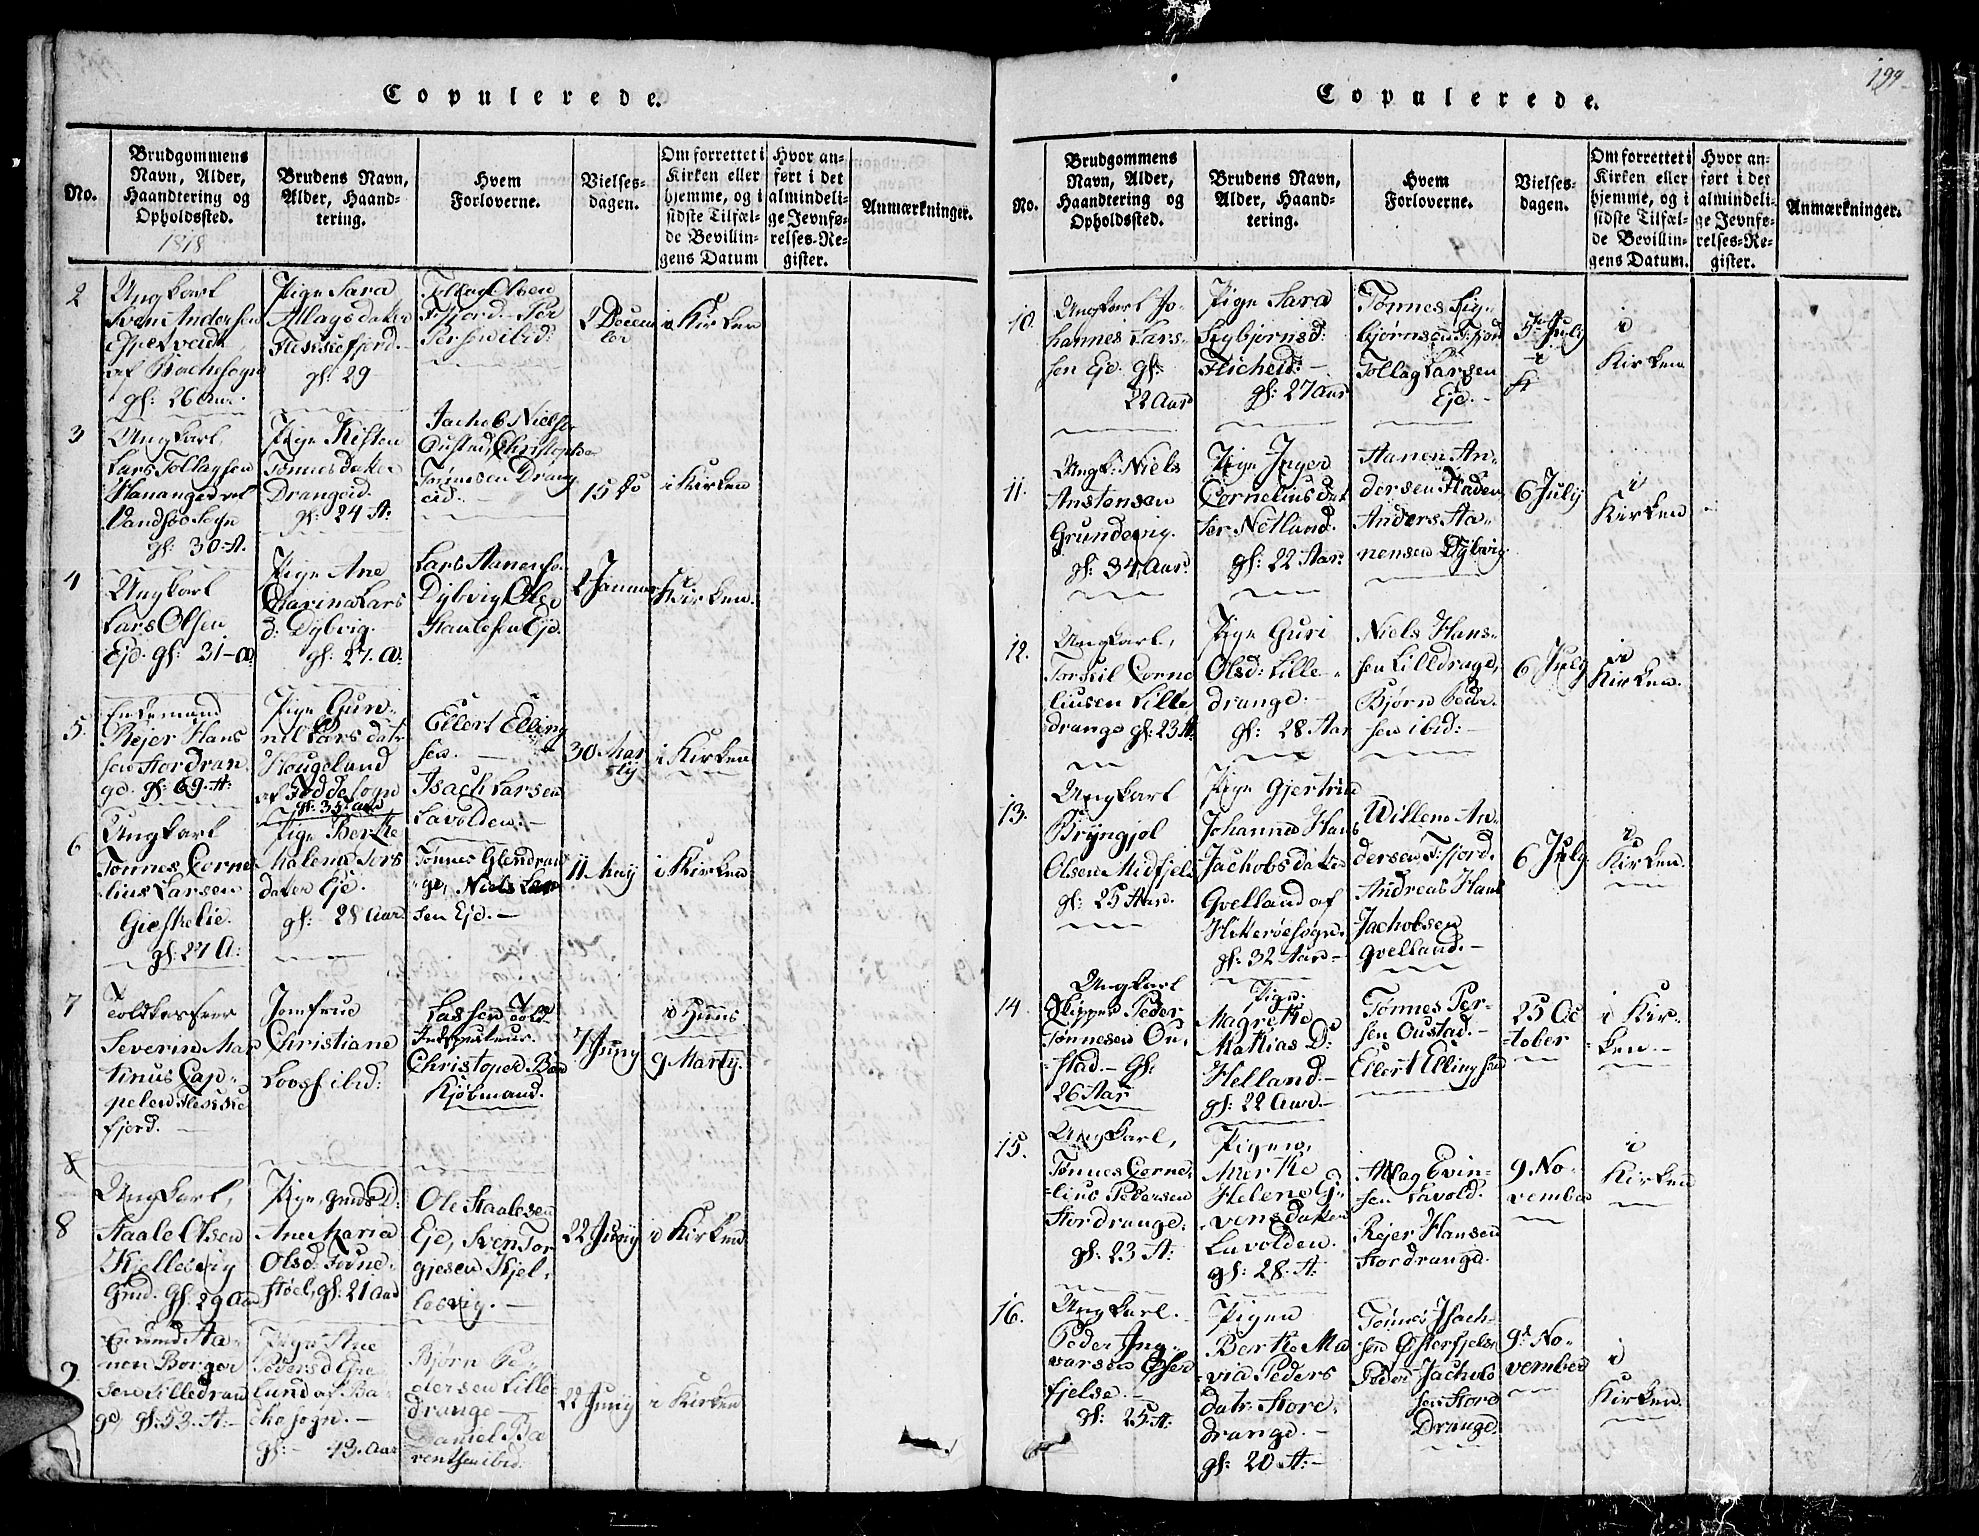 Copulerede.
No.
Brudgommens
Navn, Alder,
Haandtering og
Opholdssted.
1818
Brudens Navn,
Alder, Haand-
tering.
Hvem
Forloverne.
Vielses-
dagen.
Om forrettet i
Kirken eller
hjemme, og i
sidste Tilfæl-
de Bevillin-
gens Datum
Hvor an-
ført i det
almindeli-
ge Jevnfø-
relses-Re-
gister.
Anmærkninger.
2
Ungkarl
Sven Andersen
af Bachesogn
gl: 26 Aar.
Pige Sara
Atlagsdater
Fleskefjord.
gl: 29
Tollag Olsen
Fjord - Per
Persen ibid:
2 Decem
ber
i Kirken
3
Ungkarl
Lars Tollagsen
Hananger
Vandsøe Sogn
gl: 30 A.
Pige Kisten
Tønnesdater
Drangeid.
gl: 24 A:
Jachob Niels
Oustad, Christopher
Tønnesen Drang
eid.
15 do
i Kirken
4
Ungkarl
Lars Olsen
Eje. gl: 31 a
Pige Ane
Marina Lars
d: Dybvig.
gl: 27. a:
Lars Aanens.
Dybvig, Ole
Staalesen Eje.
2 Januar
i Kirken.
5.
Enkemand
Rejer Hans
sen Stordran
ge. gl: 69. A:
Pige Gun-
nil Lars datr
Hougeland
af Fedde sogn
gl: 35 Aar
Ellert Elling
sen.
Isach Larsen
Lavolden.
30 Mar
tÿ
i Kirken
6
Ungkarl
Tønnes Corne
lius Larsen
Gieshelie.
gl: 27 A:
Pige Berthe
Malena Tors
dater Eje.
gl: 28 Aar
Tønnes Glendran
ge, Niels Lar
sen Eje.
11 Maÿ
i Kirken
7
Toldkasserer
Severin Mar
tinus Cap-
pelen Flekke
fjord.
Jomfrue
Christiane
Loos ibid:
Lassen Told
Inspecteur.
Christopher Be
Kjøbmand.
7 Junÿ
i Huus
9 Martÿ.
8
8
Ungkarl,
Staale Olsen
Kjellesvig
Gmd. gl: 29 Aar
Pige, Gmds D:
Ane Maria
Olsd. Todne-
støel, gl: 21 Aar
Ole Staalesen
Eje, Sven Tor
gjesen Kjel-
lesvig.
22 Junÿ
i Kirken
9
Enkemd Aa-
nen Borger
sen Lilledran
ge, gl: 53. A:
Pige Ane
Pedersd. Gre
lund af Ba
che sogn.
gl: 43. Aar
Bjørn Pe-
dersen Lille
drange
Daniel Be
rentsen ibid.
22 Junÿ
i Kirken
199
Copulerede.
No.
Brudgommens
Navn, Alder,
Haandtering og
Opholdssted.
Brudens Navn,
Alder, Haand-
tering.
Hvem
Forloverne.
Vielses-
dagen.
Om forrettet i
Kirken eller
hjemme, og i
sidste Tilfæl-
de Bevillin-
gens Datum.
Hvor an-
ført i det
almindeli-
ge Jevnfø-
relses-Re-
gister.
Anmærkninger.
10.
Ungkarl Jo-
hannes Lars-
sen Eje. gl:
22 Aar
Pige Sara
Sigbjørnsd:
Flicheid:
gl: 27 Aar
Tønnes Sig-
bjørnsen Fjord
Tollag Larsen
Eje.
5te July
i
Kirken
11.
Ungk: Niels
Anstensen
Grundevig.
gl: 34 Aar.
Pige Inger
Cornelius dat
ter Netland.
gl: 22 Aar.
Aanen An-
dersen Staden
Anders Aa-
nensen Dybvig
6 Julÿ
i
Kirken
12.
Ungkarl,
Torkil Corne
liusen Lille
drange gl: 23 A:
Pige Guri
Olsd: Lille-
drange.
gl: 28 Aar
Niels Hans-
sen Lilledrange,
Bjørn Peder
sen ibid:
6 July
i
Kirken.
13.
Ungkarl
Brÿngjol
Olsen Midfjeld
gl: 25 Aar.
Pige Gjertrue
Johanna Hans
Jachobsdater
Qvelland af
Hiterøe sogn.
gl: 32 Aar
Willem An-
dersen Fjord.
Andreas Hans
Jachobsen
Qvelland.
6 July
i
Kirken.
14.
Ungkarl
Skipper Peder
Tønnesen Ou-
stad. gl:
26 Aar
Pige:
Magrethe
Mathias D:
Helland.
gl: 22 Aar.
Tønnes Per-
sen Oustad.
Ellert Ellingsen
25 Oc
tober
i Kir-
ken.
15.
Ungkarl,
Tønnes Corne-
lius Pedersen
Stordrange.
gl: 23 A:
Pigen,
Merthe
Helene Ei-
vensdater
Lavolden.
gl: 28. A:
Atlag Evin-
sen Lavold.
Rejer Hansen
Stordrange.
9. No-
vember
i
Kirken
16.
Ungkarl.
Peder Ing-
varsen Øster
fjelse.
gl: 25 A:
Pigen
Berthe Ma
ria Peders
datr. Store-
drange.
gl: 20 A:
Tønnes Isach-
sen Østerfjelse
Peder Jachob
sen Stor
Drange.
9d No-
vember
i
Kirken.